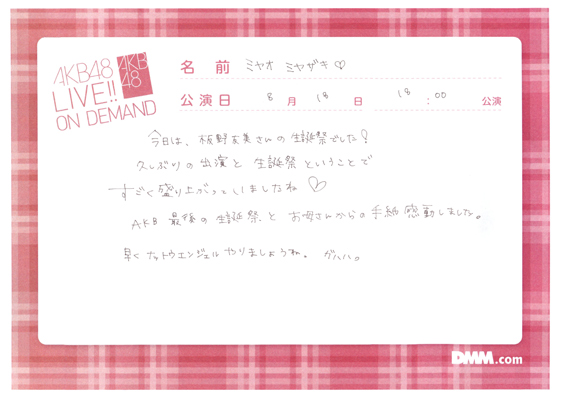 AKB48
LIVE!!
ON DEMAND
AKB
48
名前 ミヤオ ミヤザキ♡
公演日 8月18日 18:00 公演
今日は、板野友美さんの生誕祭でした!
久しぶりの出演と生誕祭ということで
すごく盛り上がっていましたね♡
AKB最後の生誕祭とお母さんからの手紙感動しました。
早くナットウエンジェルやりましょうね。ガハハ。
DMM.com